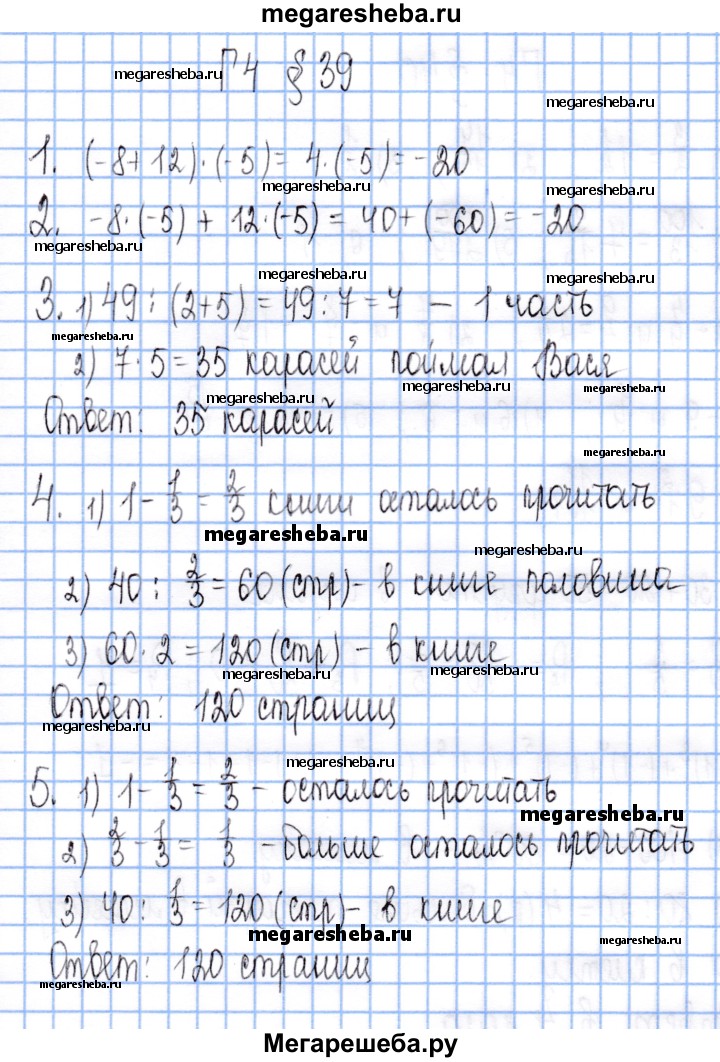 megaresheba.ru
Г4 § 39
megaresheba.ru
megaresheba.ru
1. (-8+12)·(-5)= 4·(-5)= -20
megaresheba.ru
megaresheba.ru
2. -8·(-5) + 12·(-5) = 40+(-60)= -20
megaresheba.ru
megaresheba.ru
megaresheba.ru
3. 1) 49 : (2+5) = 49 : 7 = 7 – 1 часть
megaresheba.ru
2) 7·5=35 карасей поймал Вася
megaresheba.ru
megaresheba.ru
Ответ: 35 карасей
megaresheba.ru
4. 1) 1 - 1/3 = 2/3 книги осталось прочитать
megaresheba.ru
megaresheba.ru
2) 40 : 2/3 = 60 (стр) - в книге половина
3) 60·2 = 120 (стр) – в книге
megaresheba.ru
megaresheba.ru
Ответ: 120 страниц
megaresheba.ru
megaresheba.ru
5. 1) 1 - 1/3 = 2/3 - осталось прочитать
megaresheba.ru
2) 2/3 - 1/3 = 1/3 - больше осталось прочитать
3) 40 : 1/3 = 120 (стр) - в книге
megaresheba.ru
megaresheba.ru
Ответ: 120 страниц
megaresheba.ru
Мегарешеба.ру